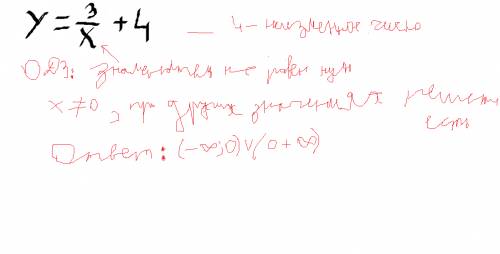 y = 3/x + 4 — 4 - неизменное число
ОДЗ: знаменатель не равен нулю
x ≠ 0, при других значениях решения
есть
Ответ: (-∞; 0) ∨ (0 + ∞)